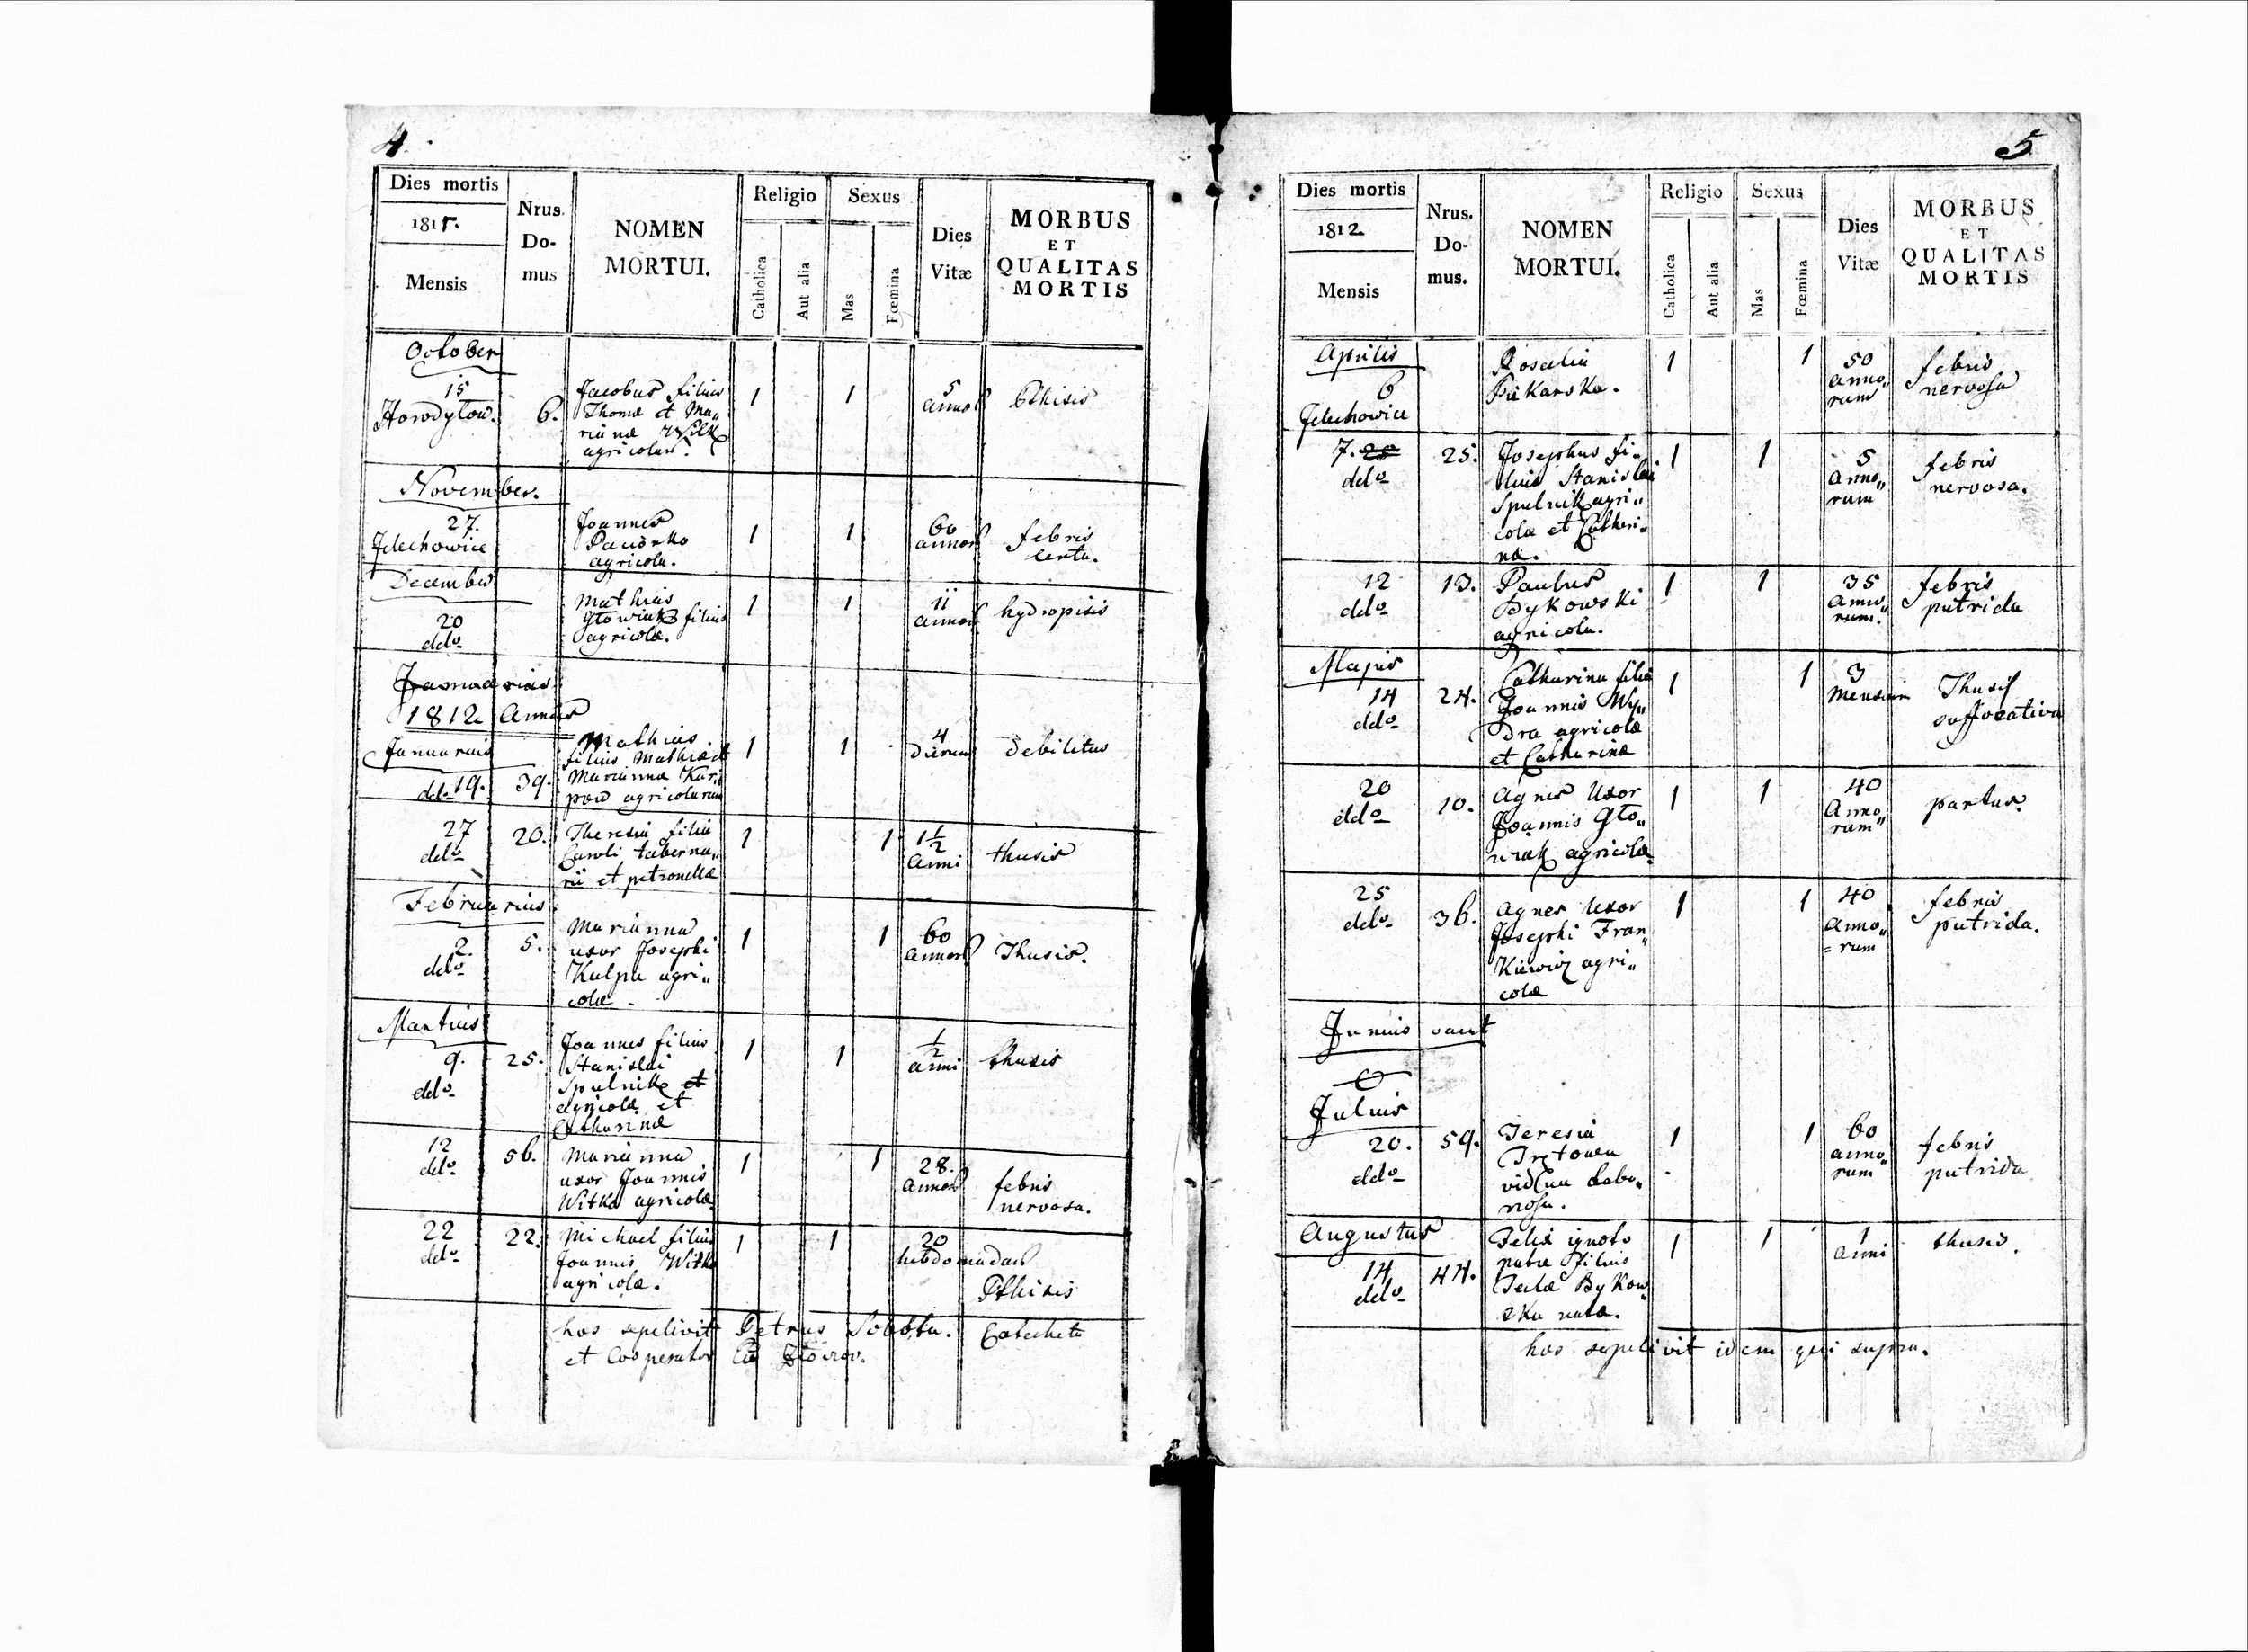 4.
Dies mortis
1811.
Mensis
Nrus.
Do-
mus
NOMEN
MORTUI.
Religio
Catholica
Aut alia
Sexus
Mas
Fœmina
Dies
Vitæ
MORBUS
ET
QUALITAS
MORTIS
October
15
Horodyłow.
6.
Jacobus filius
Thomæ et Ma„
riannæ Wilk
agricolar.
1
1
5
annor
Pthisis
November.
27.
Jelechowice
Joannes
Paciorko
agricola.
1
1
60
annor
febris
lenta.
December
20
ddo
Mathias
Głowiak filius
agricolæ.
1
1
11
annor
hydropisis
Januarius
1812 Annus
Januarius
ddo 19.
39.
Mathias
filius Mathiæ et
Mariannæ Kar„
pow agricolarum
1
1
4
dierum
debilitas
27
ddo
20.
Theresia filia
Caroli taberna„
rii et petronellæ
1
1
1 1/2
anni
thusis
Februarius
2.
ddo
5.
Marianna
uxor Josephi
Kulpa agri„
colæ
1
1
60
annor
Thusis.
Martius
9.
ddo
25.
Joannes filius
Stanislai
Spulnik et
agricolæ et
Catharinæ
1
1
1/2
anni
thusis
12
ddo
56.
Marianna
uxor Joannis
Witko agricolæ
1
1
28.
annor
febris
nervosa.
22
ddo
22.
Michael filius
Joannis Witko
agricolæ.
1
1
20
hebdomadar
Pthisis
hos sepelivit Petrus Catecheta
et Cooperator
5
Dies mortis
1812
Mensis
Nrus.
Do-
mus.
NOMEN
MORTUI.
Religio
Catholica
Aut alia
Sexus
Mas
Fœmina
Dies
Vitæ
MORBUS
ET
QUALITAS
MORTIS
Aprilis
6
Jelechowice
Rosalia
Piekarska.
1
1
50
anno„
rum
febris
nervosa
7.
ddo
25.
Josephus fi„
lius Stanislai
Spulnik agri„
colæ et Catheri„
næ.
1
1
5
Anno„
rum
febris
nervosa.
12
ddo
13.
Paulus
Bykowski
agricola.
1
1
35
anno„
rum.
febris
putrida
Majus
14
ddo
24.
Catharina filia
Joannis Wy„
dra agricolæ
et Catharinæ
1
1
3
Mensium
Thusis
suffocativa
20
ddo
10.
Agnes Uxor
Joannis Gło„
wiak agricolæ
1
1
40
Anno„
rum
partus.
25
ddo
36.
Agnes Uxor
Josephi Fran„
Kiewicz agri„
colæ
1
1
40
Anno„
= rum
febris
putrida.
Junius vacat
Julius
20.
ddo
59.
Teresia
vidua Labo„
riosa.
1
1
60
anno„
rum
febris
putrida
Augustus
14
ddo
44.
Felix ignoto
patre filius
Teclæ Bykow„
ska natæ.
1
1
1
anni
thusis.
hos sepelivit idem qui supra.